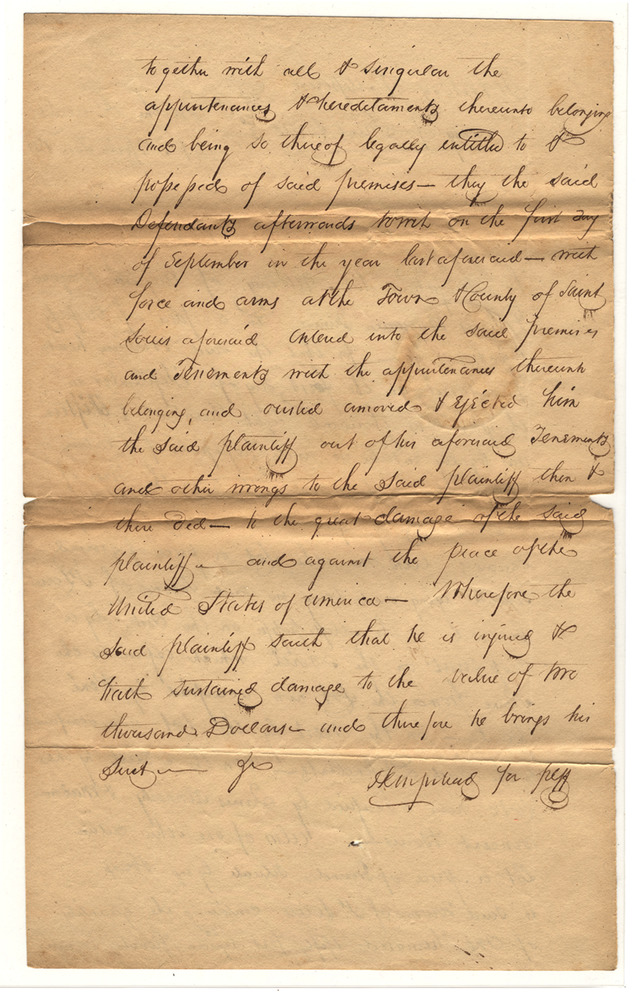 together with all & singular the
appurtenances & hereditaments thereunto belonging
and being so thereof legally entitled to &
possessed of said premises — they the said
Defendants afterwards towit on the first day
of September in the year last aforesaid — with
force and arms at the Town & County of Saint
Louis aforesaid entered into the said premises
and Tenements with the appurtenances thereunto
belonging, and ousted amoved & Ejected him
the said plaintiff out of his aforesaid Tenements
and other wrongs to the said plaintiff then &
there did — to the great damage of the said
plaintiff — and against the peace of the
United States of america — Wherefore the
said plaintiff saith that he is injured &
hath sustained damage to the value of two
thousand Dollars — and therefore he brings his
Suit —
Hempstead for plff